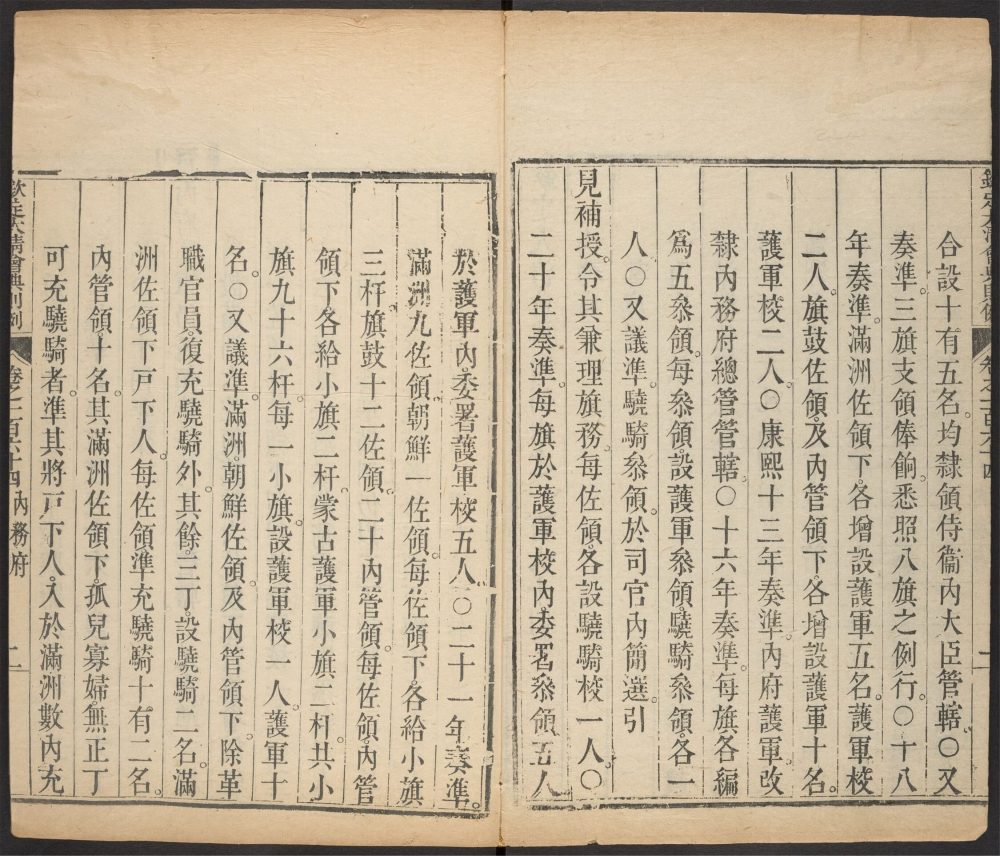 合設十有五名。均隸領侍衞內大臣管轄。○又
奏準。三旗支領俸餉。悉照八旗之例行。○十八
年奏準。滿洲佐領下。各增設護軍五名。護軍校
二人。旗鼓佐領。及內管領下。各增設護軍十名。
護軍校二人。○康熙十三年奏準。內府護軍。改
隸內務府總管管轄。○十六年奏準。每旗各編
爲五叅領。每叅領。設護軍叅領。驍騎叅領。各一
人。○又議準。驍騎叅領。於司官內簡選。引
見補授。令其兼理旗務。每佐領。各設驍騎校一人。○
二十年奏準。每旗於護軍校內。委署叅領五人。
於護軍內。委署護軍校五人。○二十一年奏準。
滿洲九佐領。朝鮮一佐領。每佐領下。各給小旗
三杆。旗鼓十二佐領。二十內管領。每佐領。內管
領下。各給小旗二杆。蒙古護軍小旗二杆。共小
旗九十六杆。每一小旗。設護軍校一人。護軍十
名。○又議準。滿洲。朝鮮佐領。及內管領下。除革
職官員。復充驍騎外。其餘三丁。設驍騎二名。滿
洲佐領下戶下人。每佐領準充驍騎十有二名。
內管領。十名。其滿洲佐領下。孤兒寡婦。無正丁
可充驍騎者。準其將戶下人。入於滿洲數內充
欽定大清會典則例 卷之一百六十四 內務府 二